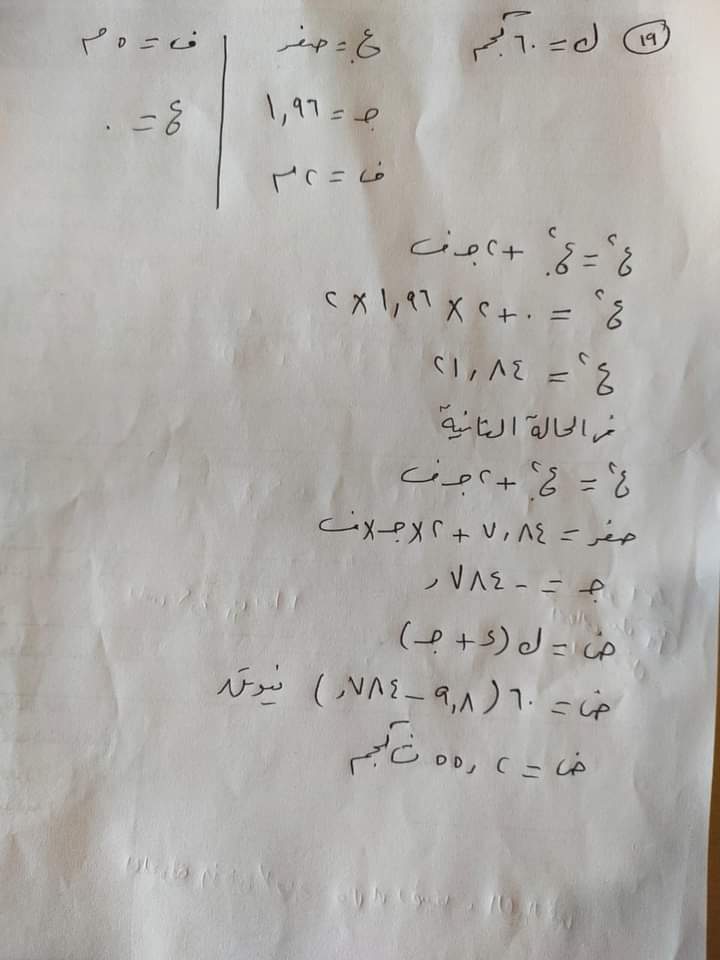 ١٩ ك = ٦٠ كجم ع. = صفر ف = ٥ م
جـ = ١,٩٦ ع = ٠
ف = ٢ م
ع² = ع.² + ٢ جـ ف
ع² = ٠ + ٢ × ١,٩٦ × ٢
ع² = ٢١,٨٤
في الحالة الثانية
ع² = ع.² + ٢ جـ ف
صفر = ٧,٨٤ + ٢ × جـ × ف
جـ = - ,٧٨٤
ض = ك (ء + جـ)
ض = ٦٠ (٩,٨ - ,٧٨٤) نيوتن
ض = ٥٥,٢ ث كجم